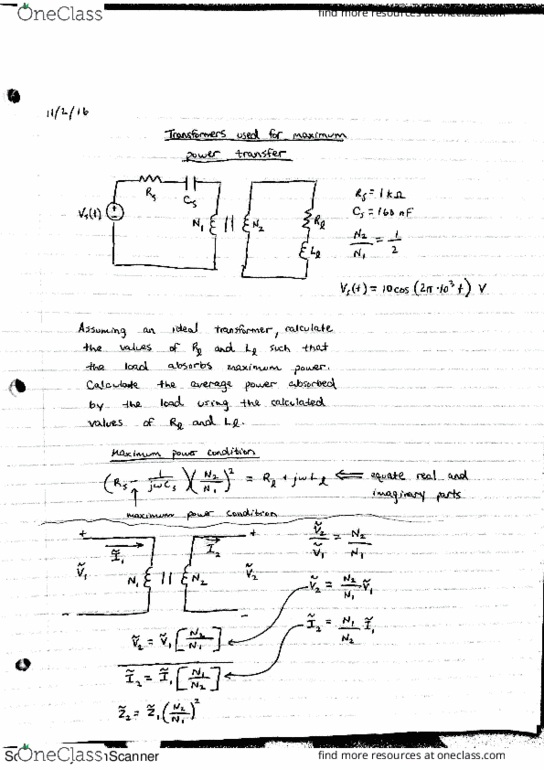 OneClass
find more resources at oneclass.com
11/2/16
Transformers used for maximum
power transfer
Rs
Cs
Vs(t)
+
-
N1
N2
Rℓ
Lℓ
Rs = 1 kΩ
Cs = 160 nF
N2/N1 = 1/2
Vs(t) = 10cos(2π·10³t) V
Assuming an ideal transformer, calculate
the values of Rℓ and Lℓ such that
the load absorbs maximum power.
Calculate the average power absorbed
by the load using the calculated
values of Rℓ and Lℓ.
Maximum power condition
(Rs - 1/jωCs)(N2/N1)² = Rℓ + jωLℓ ⇐ equate real and
imaginary parts
maximum power condition
+
Ĩ1
Ĩ2
+
Ṽ1
N1
N2
Ṽ2
-
-
Ṽ2/Ṽ1 = N2/N1
Ṽ2 = N2/N1 Ṽ1
Ĩ2 = N1/N2 Ĩ1
Ṽ2 = Ṽ1 [N2/N1]
Ĩ2 = Ĩ1 [N1/N2]
Z̃2 = Z̃1 (N2/N1)²
OneClass
Scanner
find more resources at oneclass.com